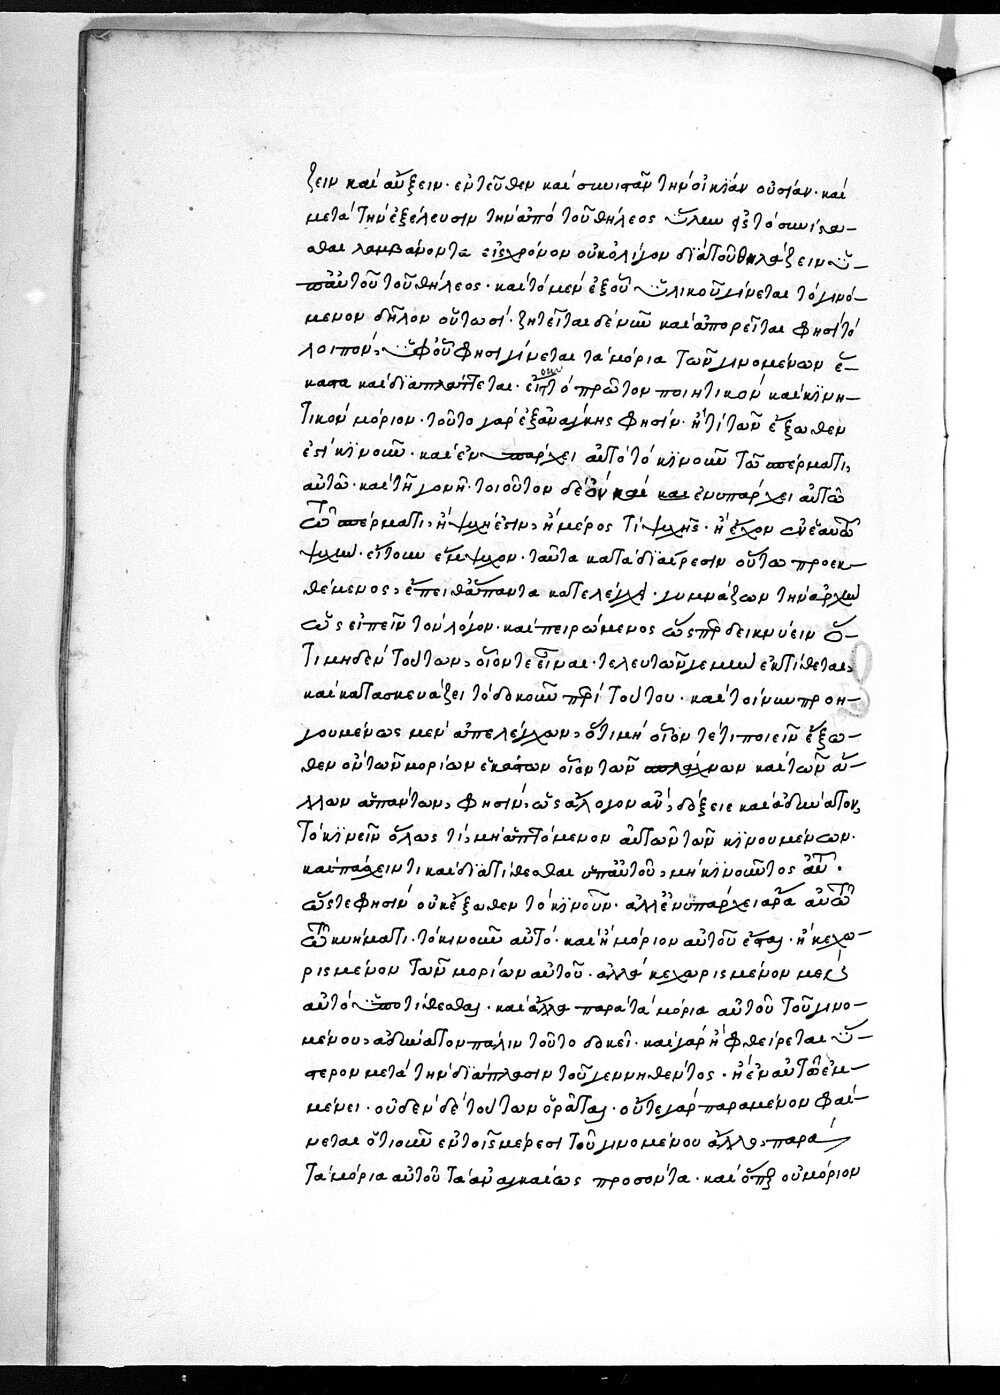 ζειν καὶ αὔξειν· ἐντεῦθεν καὶ συνιστᾶν τὴν οἰκίαν οὐσίαν· καὶ
μετὰ τὴν ἐξέλευσιν τὴν ἀπὸ τοῦ θήλεος ὕλην εἰς τὸ συνίστα-
σθαι λαμβάνοντα εἰς χρόνον οὐκ ὀλίγον διὰ τοῦ θηλάζειν ὑ-
π' αὐτοῦ τοῦ θήλεος· καὶ τὸ μὲν ἐξ οὗ ὑλικοῦ γίνεται τὸ γινό-
μενον δῆλον οὕτωσί· ζητεῖται δὲ νῦν καὶ ἀπορεῖται φησὶ τὸ
λοιπόν, ὑφ' οὗ φησι γίνεται τὰ μόρια τῶν γινομένων ἕ-
καστα καὶ διαπλάττεται· εἴτουν τὸ πρῶτον ποιητικὸν καὶ κινη-
τικὸν μόριον· τοῦτο γὰρ ἐξανάγκης φησὶν· ἤ τι τῶν ἔξωθεν
ἐστὶ κινοῦν· καὶ ἐνυπάρχει αὐτὸ τὸ κινοῦν τῷ σπέρματι,
αὐτῷ· καὶ τῇ γονῇ· τοιοῦτον δὲ ὂν καὶ καὶ ἐνυπάρχει αὐτῷ
τῷ σπέρματι, ἢ ψυχή ἐστιν, ἢ μέρος τι ψυχῆς· ἢ ἔχον ἐν ἑαυτῷ
ψυχὴν· εἴτουν ἔμψυχον· ταῦτα κατὰ διαίρεσιν οὕτω προεκ-
θέμενος, ἔπειθ' ἅπαντα κατελέγχει· γυμνάζων τὴν ἀρχὴν
ὡς εἰπεῖν τὸν λόγον· καὶ πειρώμενος ὥσπερ δεικνύειν ὅ-
τι μηδὲν τούτων, οἷόν τε εἶναι· τελευτῶν γε μὴν ἐκτίθεται,
καὶ κατασκευάζει τὸ δοκοῦν περὶ τούτου· καὶ τοίνυν προη-
γουμένως μὲν ἀπελέγχων, ὅτι μὴ οἷόν τέ τι ποιεῖν ἔξω-
θεν ὂν τῶν μορίων ἕκαστον οἷον τῶν σπλάγχνων καὶ τῶν ἄ-
λλων ἁπάντων, φησίν, ὡς ἄλογον ἂν, δόξειε καὶ ἀδύνατον,
τὸ κινεῖν ὅλως τί, μὴ ἁπτόμενον αὐτῶν τῶν κινουμένων·
καὶ πάσχειν τι καὶ διατίθεσθαι ὑπ' αὐτοῦ, μὴ κινοῦντος αὐτ.
ὥστε φησὶν οὐκ ἔξωθεν τὸ κινοῦν· ἀλλ' ἐνυπάρχει ἄρα αὐτῷ
τῷ κυήματι· τὸ κινοῦν αὐτό· καὶ ἢ μόριον αὐτοῦ ἔσται· ἢ κεχω-
ρισμένον τῶν μορίων αὐτοῦ· ἀλλὰ κεχωρισμένον μὲν
αὐτὸ ὑποτίθεσθαι· καὶ ἄλλο παρὰ τὰ μόρια αὐτοῦ τοῦ γινο-
μένου, ἀδύνατον πάλιν τοῦτο δοκεῖ· καὶ γὰρ ἢ φθείρεται ὕ-
στερον μετὰ τὴν διάπλασιν τοῦ γεννηθέντος· ἢ ἐν αὐτῷ ἐμ-
μένει· οὐδὲν δὲ τούτων ὁρᾶται· οὔτε γὰρ παραμένον φαί-
νεται ὁτιοῦν ἐν τοῖς μέρεσι τοῦ γινομένου ἄλλο, παρὰ
τὰ μόρια αὐτοῦ τὰ ἀναγκαίως προσόντα· καὶ ὅπερ οὐ μόριον